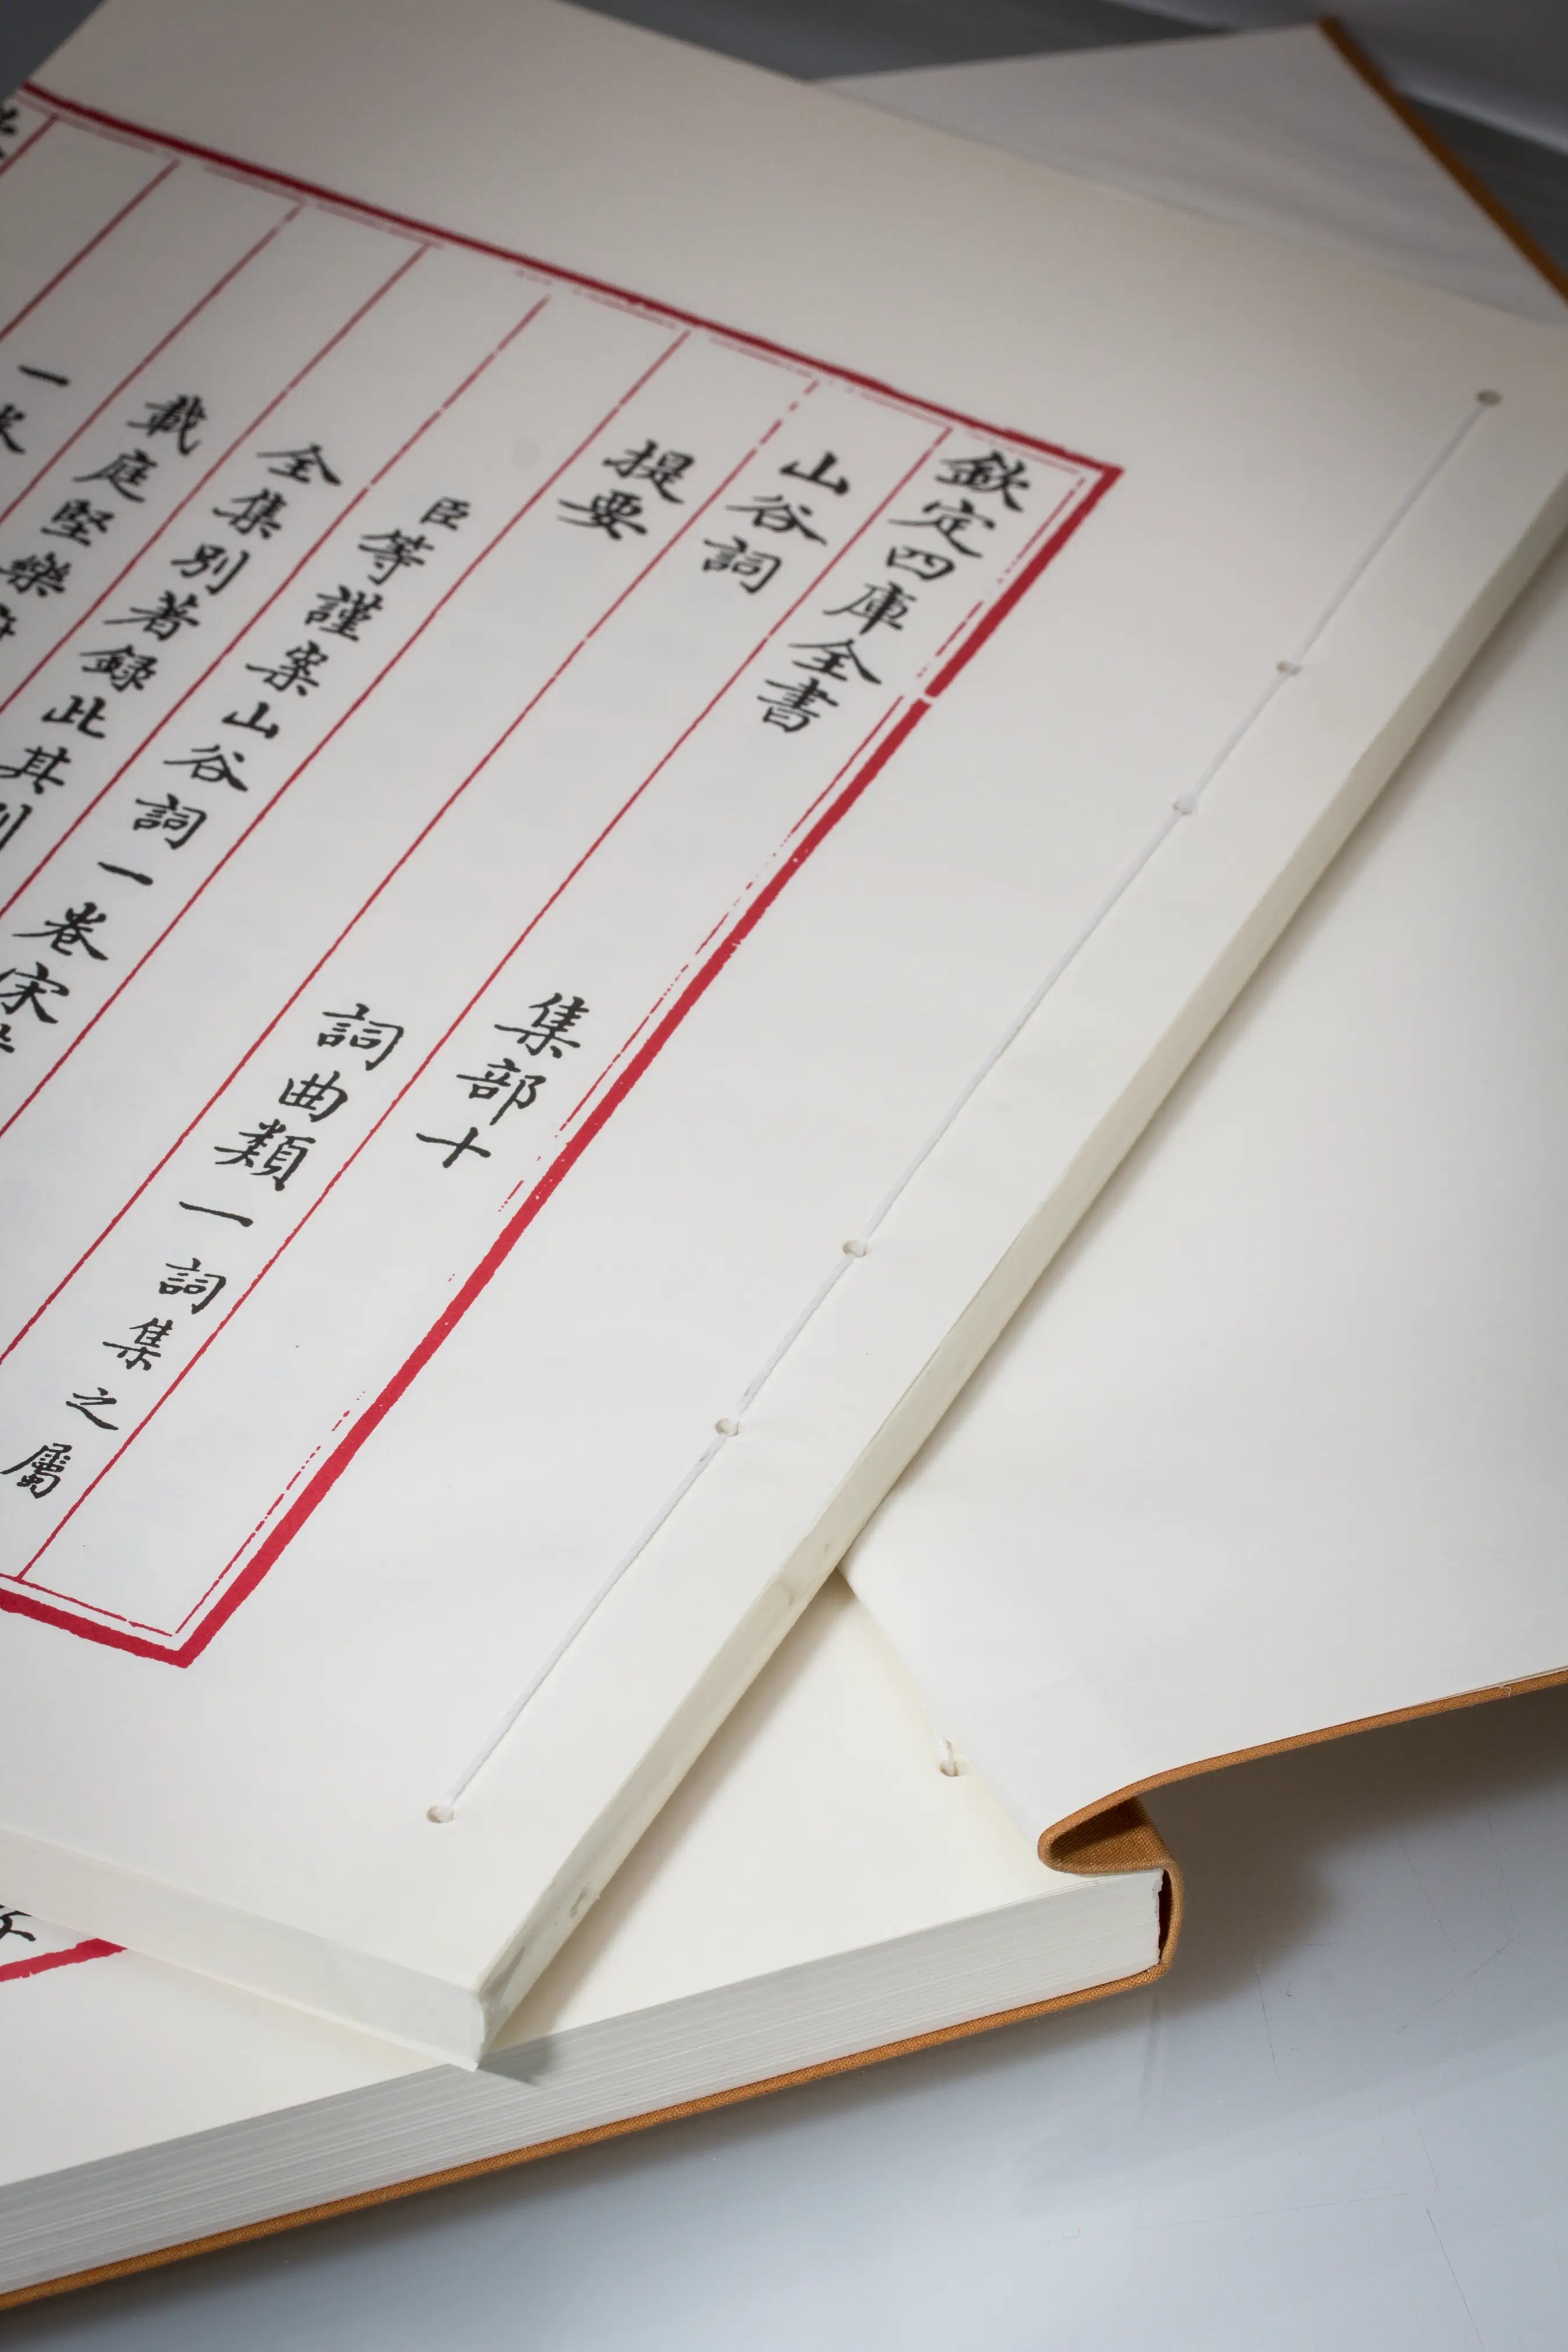 欽定四庫全書 集部十
山谷詞 詞曲類一詞集之屬
提要
臣等謹案山谷詞一卷宋
全集別著録此其
載庭堅樂
一